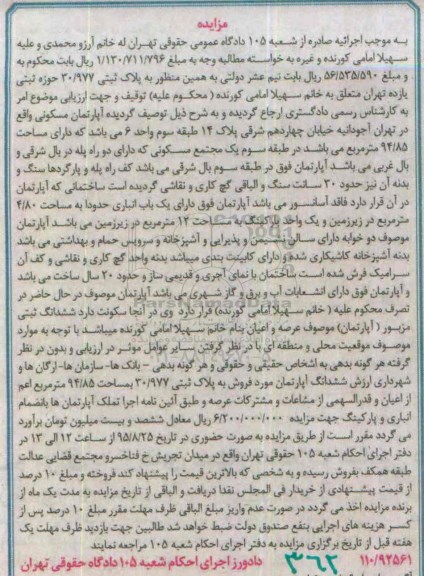 مزایده
به موجب اجرائیه صادره از شعبه ۱۰۵ دادگاه عمومی حقوقی تهران له خانم آرزو محمدی و علیه
سهیلا امامی کورنده و غیره به خواسته مطالبه وجه به مبلغ ۱/۱۳۰/۷۱۱/۷۹۶ ریال بابت محکوم به
و مبلغ ۵۶/۵۳۵/۵۹۰ ریال بابت نیم عشر دولتی به همین منظور به پلاک ثبتی ۳۰/۹۷۷ حوزه ثبتی
یازده تهران متعلق به خانم سهیلا امامی کورنده ( محکوم علیه) توقیف و جهت ارزیابی موضوع امر
به کارشناس رسمی دادگستری ارجاع گردیده و به شرح ذیل توصیف گردیده آپارتمان مسکونی واقع
در تهران آجودانیه خیابان چهاردهم شرقی پلاک ۱۴ طبقه سوم واحد ۶ می باشد که دارای مساحت
۹۴/۸۵ مترمربع می باشد در طبقه سوم یک مجتمع مسکونی که دارای دو راه پله در بال شرقی و
بال غربی می باشد آپارتمان فوق در طبقه سوم بال شرقی می باشد کف راه پله و پارگردها سنگ و
بدنه آن نیز حدود ۳۰ سانت سنگ و الباقی گچ کاری و نقاشی گردیده است ساختمانی که آپارتمان
در آن قرار دارد فاقد آسانسور می باشد آپارتمان فوق دارای یک باب انباری حدودا به مساحت ۴/۸۰
مترمربع در زیرزمین و یک واحد پارکینگ به مساحت ۱۲ مترمربع در زیرزمین می باشد آپارتمان
موصوف دو خوابه دارای سالن نشیمن و پذیرایی و آشپزخانه و سرویس حمام و بهداشتی می باشد
بدنه آشپزخانه کاشیکاری شده و دارای کابینت بندی میباشد بدنه واحد گچ کاری و نقاشی و کف آن
سرامیک فرش شده است ساختمان با نمای آجری و قدیمی ساز و حدود ۲۰ سال ساخت می باشد
و آپارتمان فوق دارای انشعابات آب و برق و گاز شهری می باشد آپارتمان موصوف در حال حاضر در
تصرف محکوم علیه ( خانم سهیلا امامی کورنده) قرار دارد وی در آنجا سکونت دارد ششدانگ ثبتی
مزبور ( آپارتمان) موصوف عرصه و اعیان بنام خانم سهیلا امامی کورنده میباشد با توجه به موارد
موصوف موقعیت محلی و منطقه ای با در نظر گرفتن سایر عوامل موثر در ارزیابی و بدون در نظر
گرفته هر گونه بدهی به اشخاص حقیقی و حقوقی و هر گونه بدهی - بانک ها- سازمان ها-ارگان ها و
شهرداری ارزش ششدانگ آپارتمان مورد فروش به پلاک ثبتی ۳۰/۹۷۷ بمساحت ۹۴/۸۵ مترمربع اعم
از اعیان و قدرالسهمی از مشاعات و مشترکات عرصه و طبق آئین نامه اجرا تملک آپارتمان ها بانضمام
انباری و پارکینگ جهت مزایده ۶/۲۰۰/۰۰۰/۰۰۰ ریال معادل ششصد و بیست میلیون تومان برآورد
می گردد مقرر است از طریق مزایده به صورت حضوری در تاریخ ۹۵/۸/۲۵ از ساعت ۱۲ الی ۱۳ در
دفتر اجرای احکام شعبه ۱۰۵ حقوقی تهران واقع در میدان تجریش خ فناخسرو مجتمع قضایی عدالت
طبقه همکف بفروش رسیده و به شخصی که بالاترین قیمت را پیشنهاد کند فروخته و مبلغ ۱۰ درصد
از قیمت پیشنهادی از خریدار فی المجلس نقدا دریافت و الباقی از تاریخ مزایده به مدت یک ماه از
برنده مزایده اخذ می گردد در صورت عدم واریز مبلغ الباقی ظرف مهلت مقرر مبلغ ۱۰ درصد پس از
کسر هزینه های اجرایی بنفع صندوق دولت ضبط خواهد شد طالبین جهت بازدید ظرف مهلت یک
هفته قبل از تاریخ برگزاری مزایده به دفتر اجرای احکام شعبه ۱۰۵ مراجعه نمایند
۱۱۰/۹۲۵۶۱ ۳۶۲ دادورز اجرای احکام شعبه ۱۰۵ دادگاه حقوقی تهران